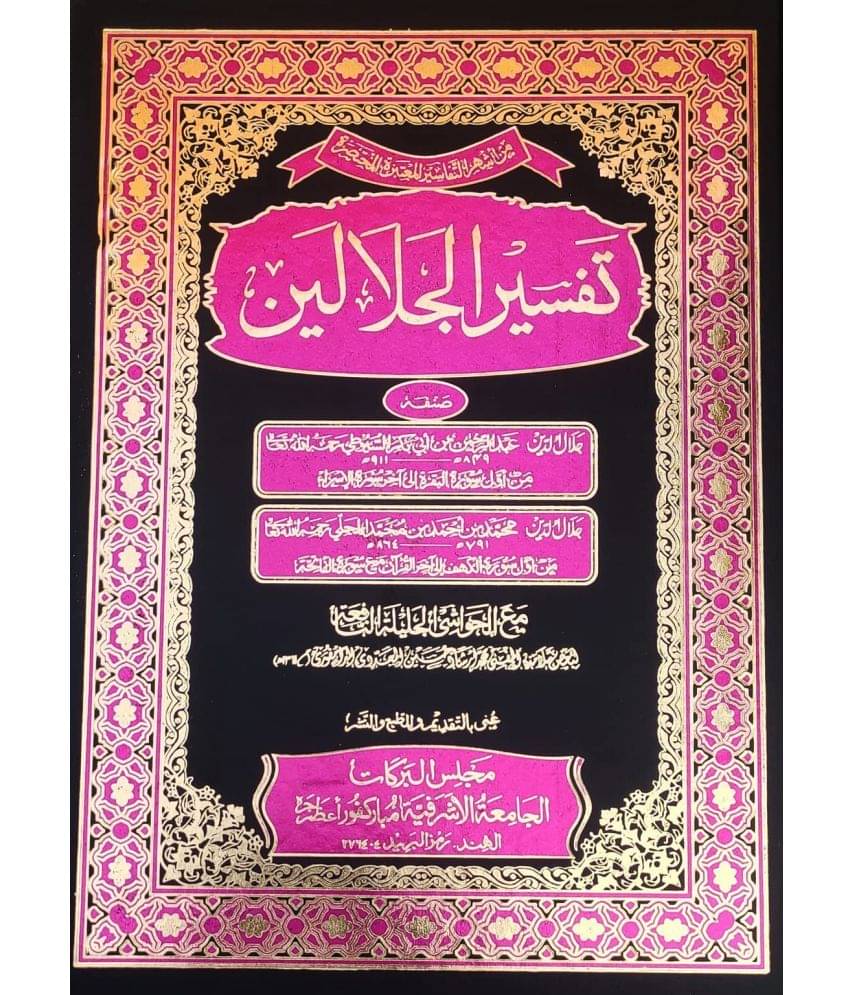 من أشهر التفاسير المعتبرة المختصرة
تفسير الجلالين
صنفه
جلال الدين عبد الرحمن بن أبي بكر السيوطي رحمه الله تعالى
٨٤٩ھ ——— ٩١١ھ
من أول سورة البقرة إلى آخر سورة الإسراء
جلال الدين محمد بن أحمد بن محمد المحلي رحمه الله تعالى
٧٩١ھ ——— ٨٦٤ھ
من أول سورة الكهف إلى آخر القرآن مع سورة الفاتحة
مع الحواشي الجليلة النافعة
عُني بالتقديم والطبع والنشر
مجلس البركات
الجامعة الأشرفية مباركفور أعظم جره
الهند. رمز البريد ٢٧٦٤٠٤